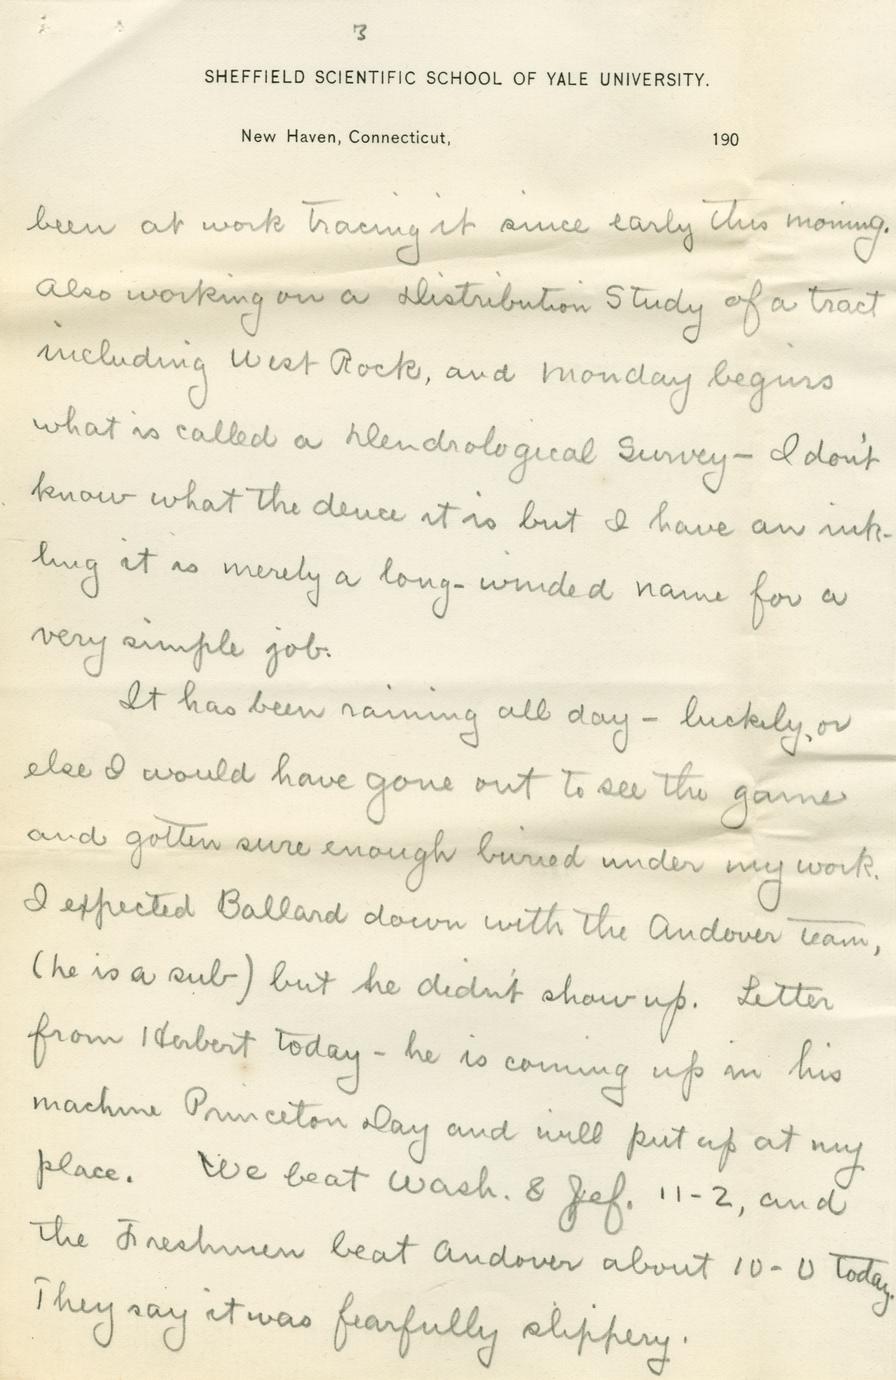 3
SHEFFIELD SCIENTIFIC SCHOOL OF YALE UNIVERSITY.
New Haven, Connecticut, 190
been at work tracing it since early this morning.
Also working on a Distribution Study of a tract
including West Rock, and Monday begins
what is called a Dendrological Survey – I don't
know what the deuce it is but I have an ink-
ling it is merely a long-winded name for a
very simple job.
It has been raining all day – luckily, or
else I would have gone out to see the game
and gotten sure enough buried under my work.
I expected Ballard down with the Andover team,
(he is a sub) but he didn't show up. Letter
from Herbert today – he is coming up in his
machine Princeton Day and will put up at my
place. We beat Wash. & Jef. 11-2, and
the Freshmen beat Andover about 10-0 today.
They say it was fearfully slippery.